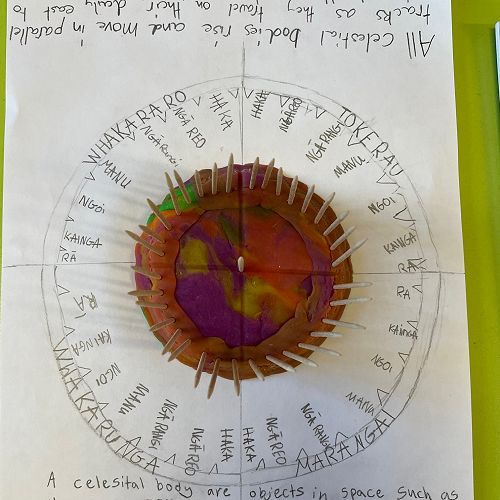 All Celestial bodies rise and move in parallel
tracks as they travel on their daily east to
WHAKARARO
HAKA
NGĀ REO
NGĀ RANGI
MANU
NGOI
KAINGA
RĀ
TOKERAU
HAKA
NGĀ REO
NGĀ RANGI
MANU
NGOI
KAINGA
RĀ
MARANGAI
RA
KAINGA
NGOI
MANU
NGĀ RANGI
NGĀ REO
HAKA
WHAKARUNGA
RĀ
KAINGA
NGOI
MANU
NGĀ RANGI
NGĀ REO
HAKA
A celesital body are objects in space such as